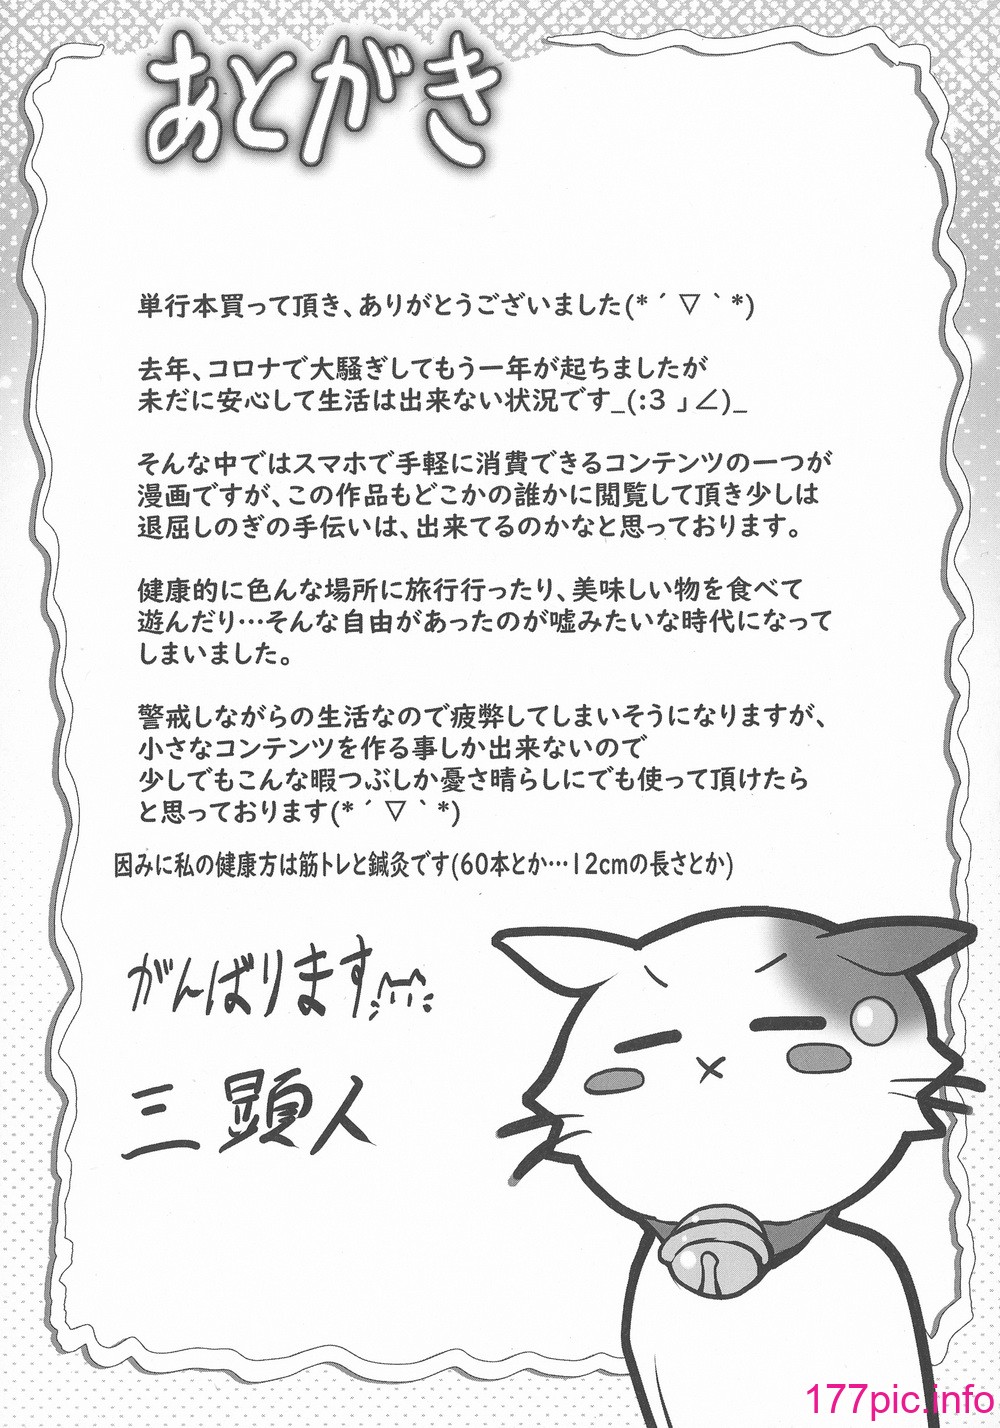 あとがき
単行本買って頂き、ありがとうございました(*´▽`*)
去年、コロナで大騒ぎしてもう一年が起ちましたが
未だに安心して生活は出来ない状況です_(:3 」∠)_
そんな中ではスマホで手軽に消費できるコンテンツの一つが
漫画ですが、この作品もどこかの誰かに閲覧して頂き少しは
退屈しのぎの手伝いは、出来てるのかなと思っております。
健康的に色んな場所に旅行行ったり、美味しい物を食べて
遊んだり…そんな自由があったのが嘘みたいな時代になって
しまいました。
警戒しながらの生活なので疲弊してしまいそうになりますが、
小さなコンテンツを作る事しか出来ないので
少しでもこんな暇つぶしか憂さ晴らしにでも使って頂けたら
と思っております(*´▽`*)
因みに私の健康方は筋トレと鍼灸です(60本とか…12cmの長さとか)
がんばります
三顕人
177pic.info